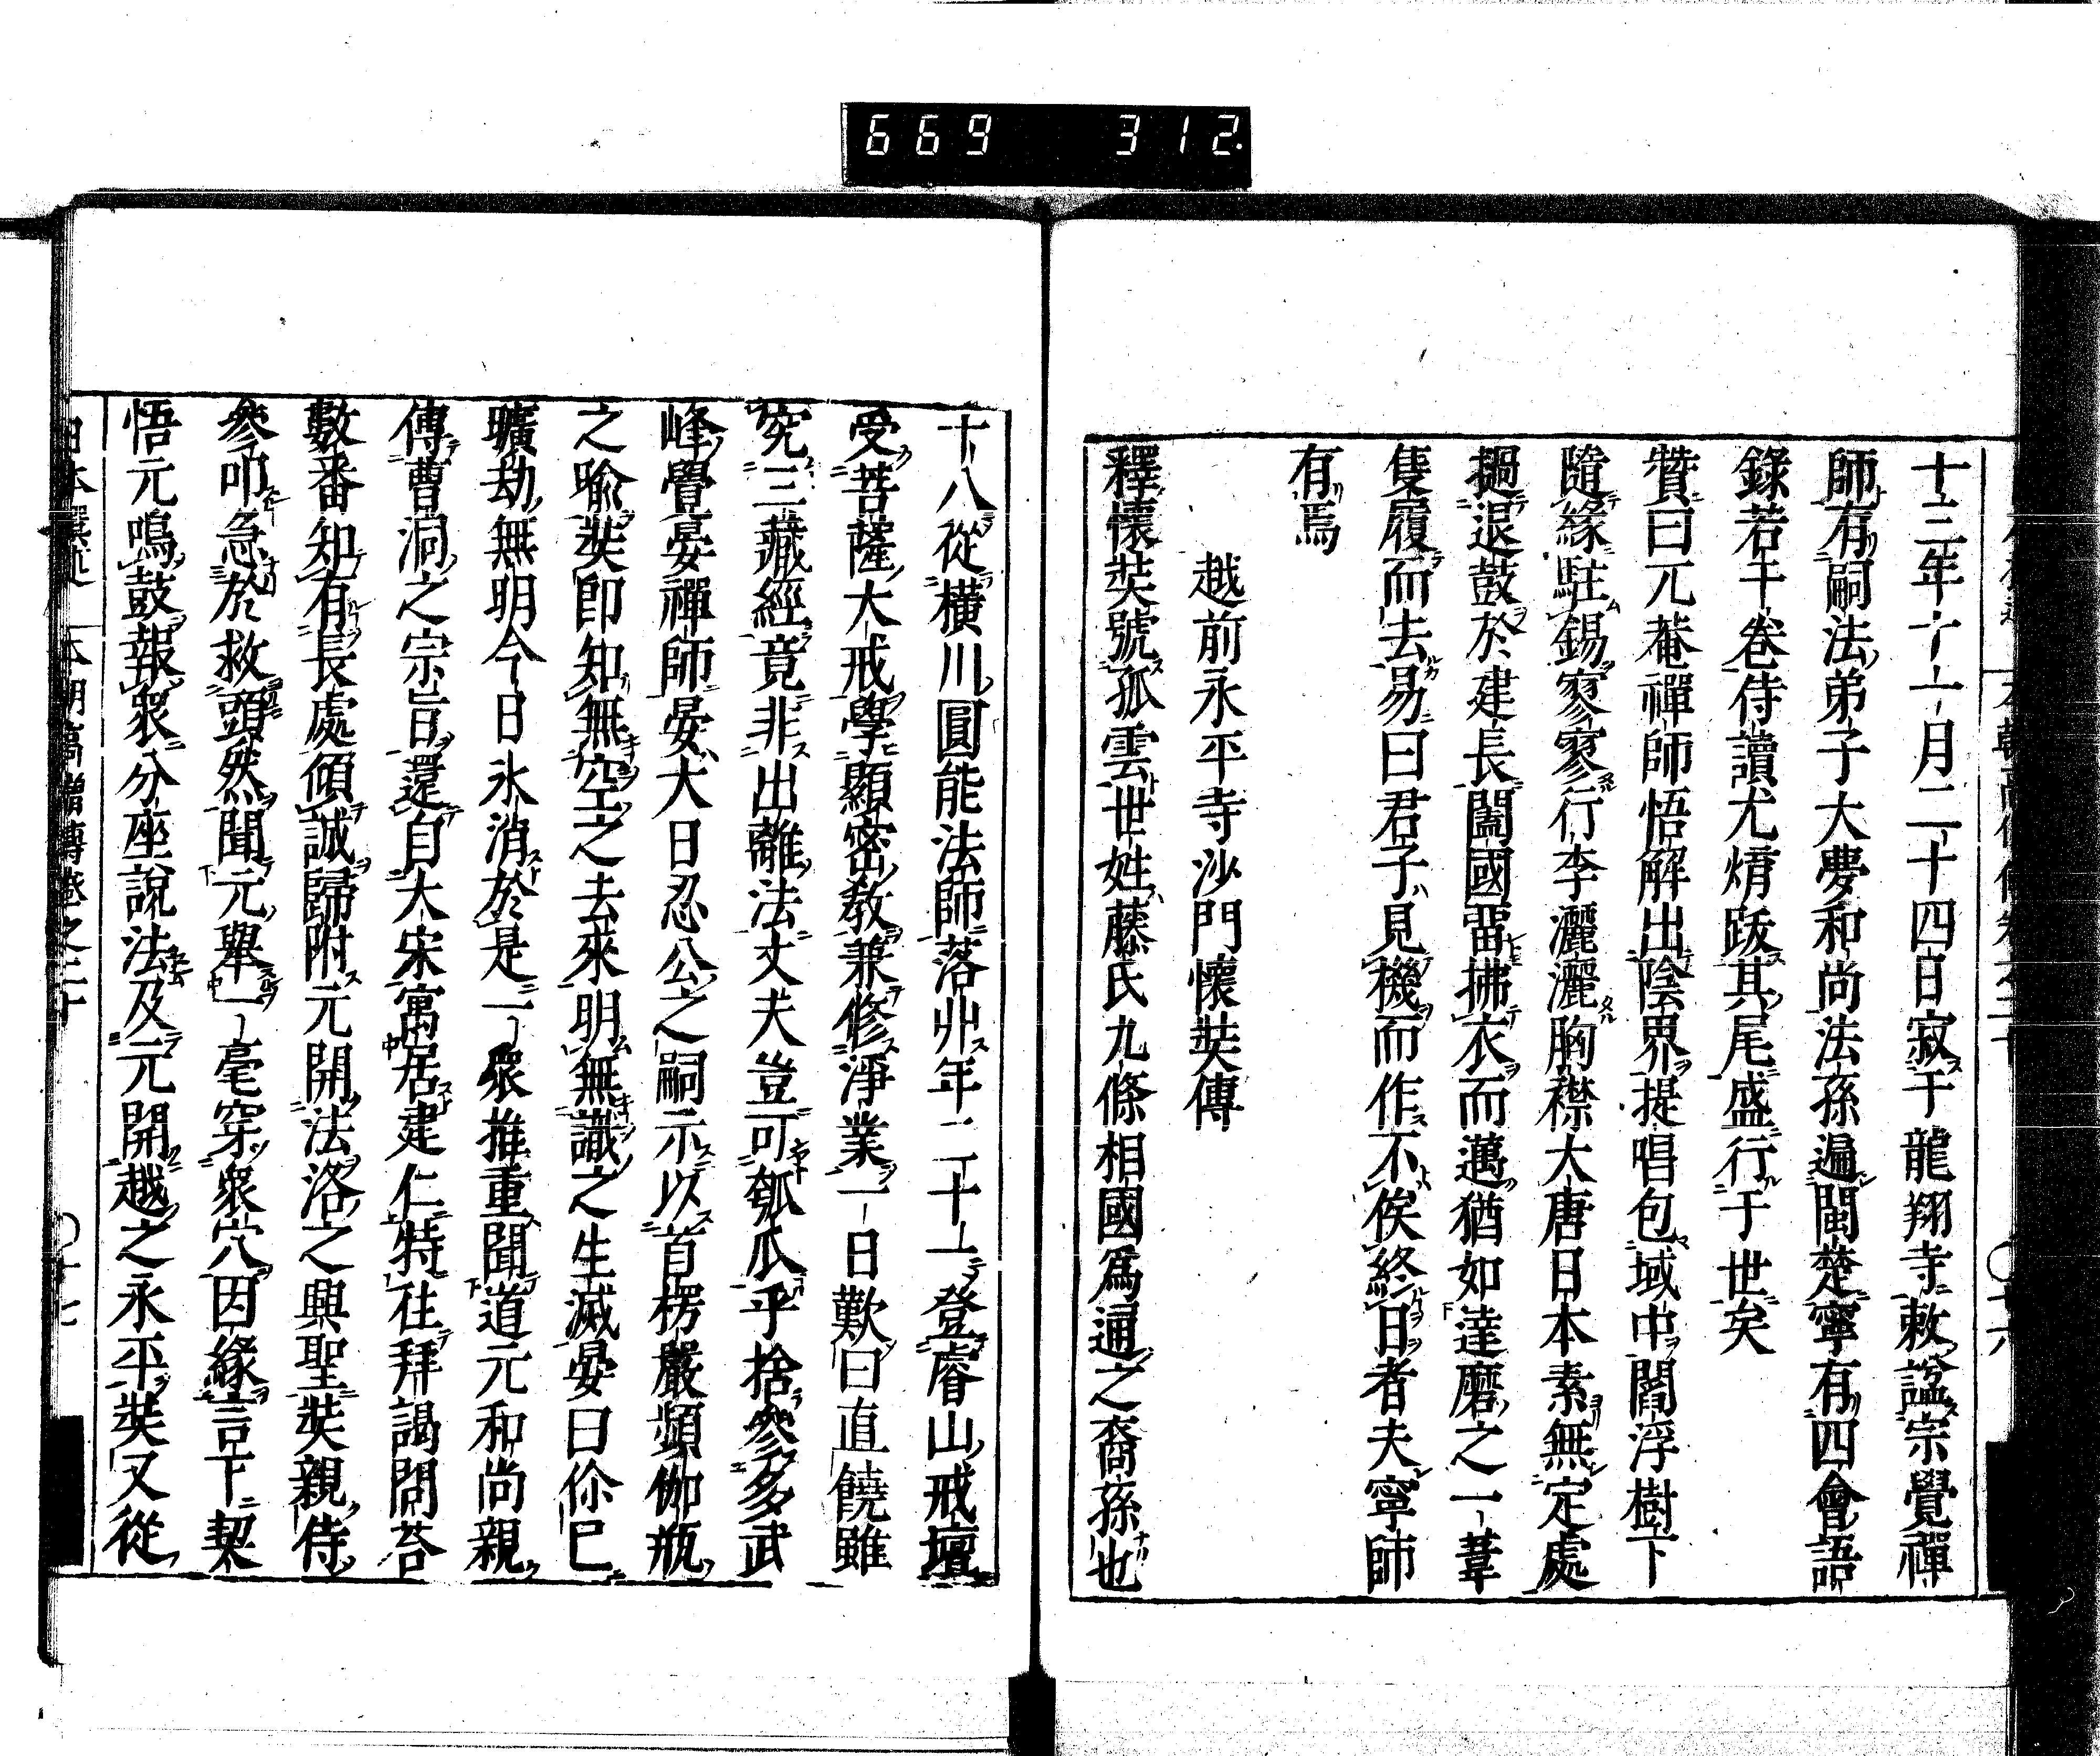 669 312.
十三年十一月二十四日寂于龍翔寺敕諡宗覺禪
師有嗣法弟子大夢和尚法孫遍閩楚寧有四會語
錄若干卷侍讀尤焴跋其尾盛行于世矣
贊曰兀菴禪師悟解出陰界提唱包域中閻浮樹下
隨緣駐錫寥寥行李灑灑胸襟大唐日本素無定處
撾退鼓於建長闔國畱拂衣而邁猶如達磨之一葦
隻履而去易曰君子見機而作不俟終日者夫寧師
有焉
越前永平寺沙門懷奘傳
釋懷奘號孤雲世姓藤氏九條相國爲通之裔孫也
十八從橫川圓能法師落丱年二十上登睿山戒壇
受菩薩大戒學顯密教兼修淨業一日歎曰直饒雖
究三藏經竟非出離法丈夫豈可瓠瓜乎捨參多武
峰覺晏禪師晏大日忍公之嗣示以首楞嚴頻伽瓶
之喻奘卽知無空之去來明無識之生滅晏曰伱已
曠劫無明今日氷消於是一衆推重聞道元和尚親
傳曹洞之宗旨還自大宋寓居建仁特往拜謁問荅
數番知有長處傾誠歸附元開法洛之興聖奘親侍
參叩急於救頭然聞元舉一毫穿衆穴因緣言下契
悟元鳴鼓報衆分座說法及元開越之永平奘又從
日本撰述 本朝高僧傳卷之二十 〇十七